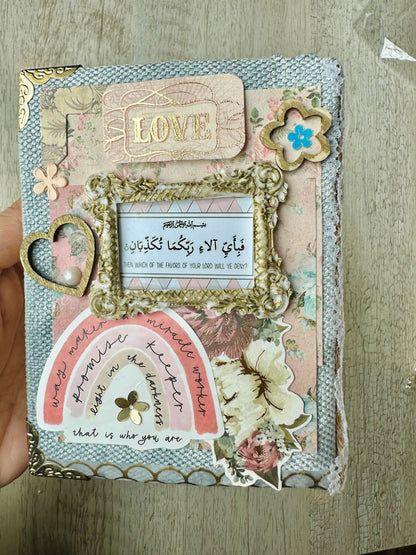 LOVE
فَبِأَيِّ آلَاءِ رَبِّكُمَا تُكَذِّبَانِ
THEN WHICH OF THE FAVORS OF YOUR LORD WILL YE DENY?
way maker miracle worker
promise keeper
light in the darkness
that is who you are